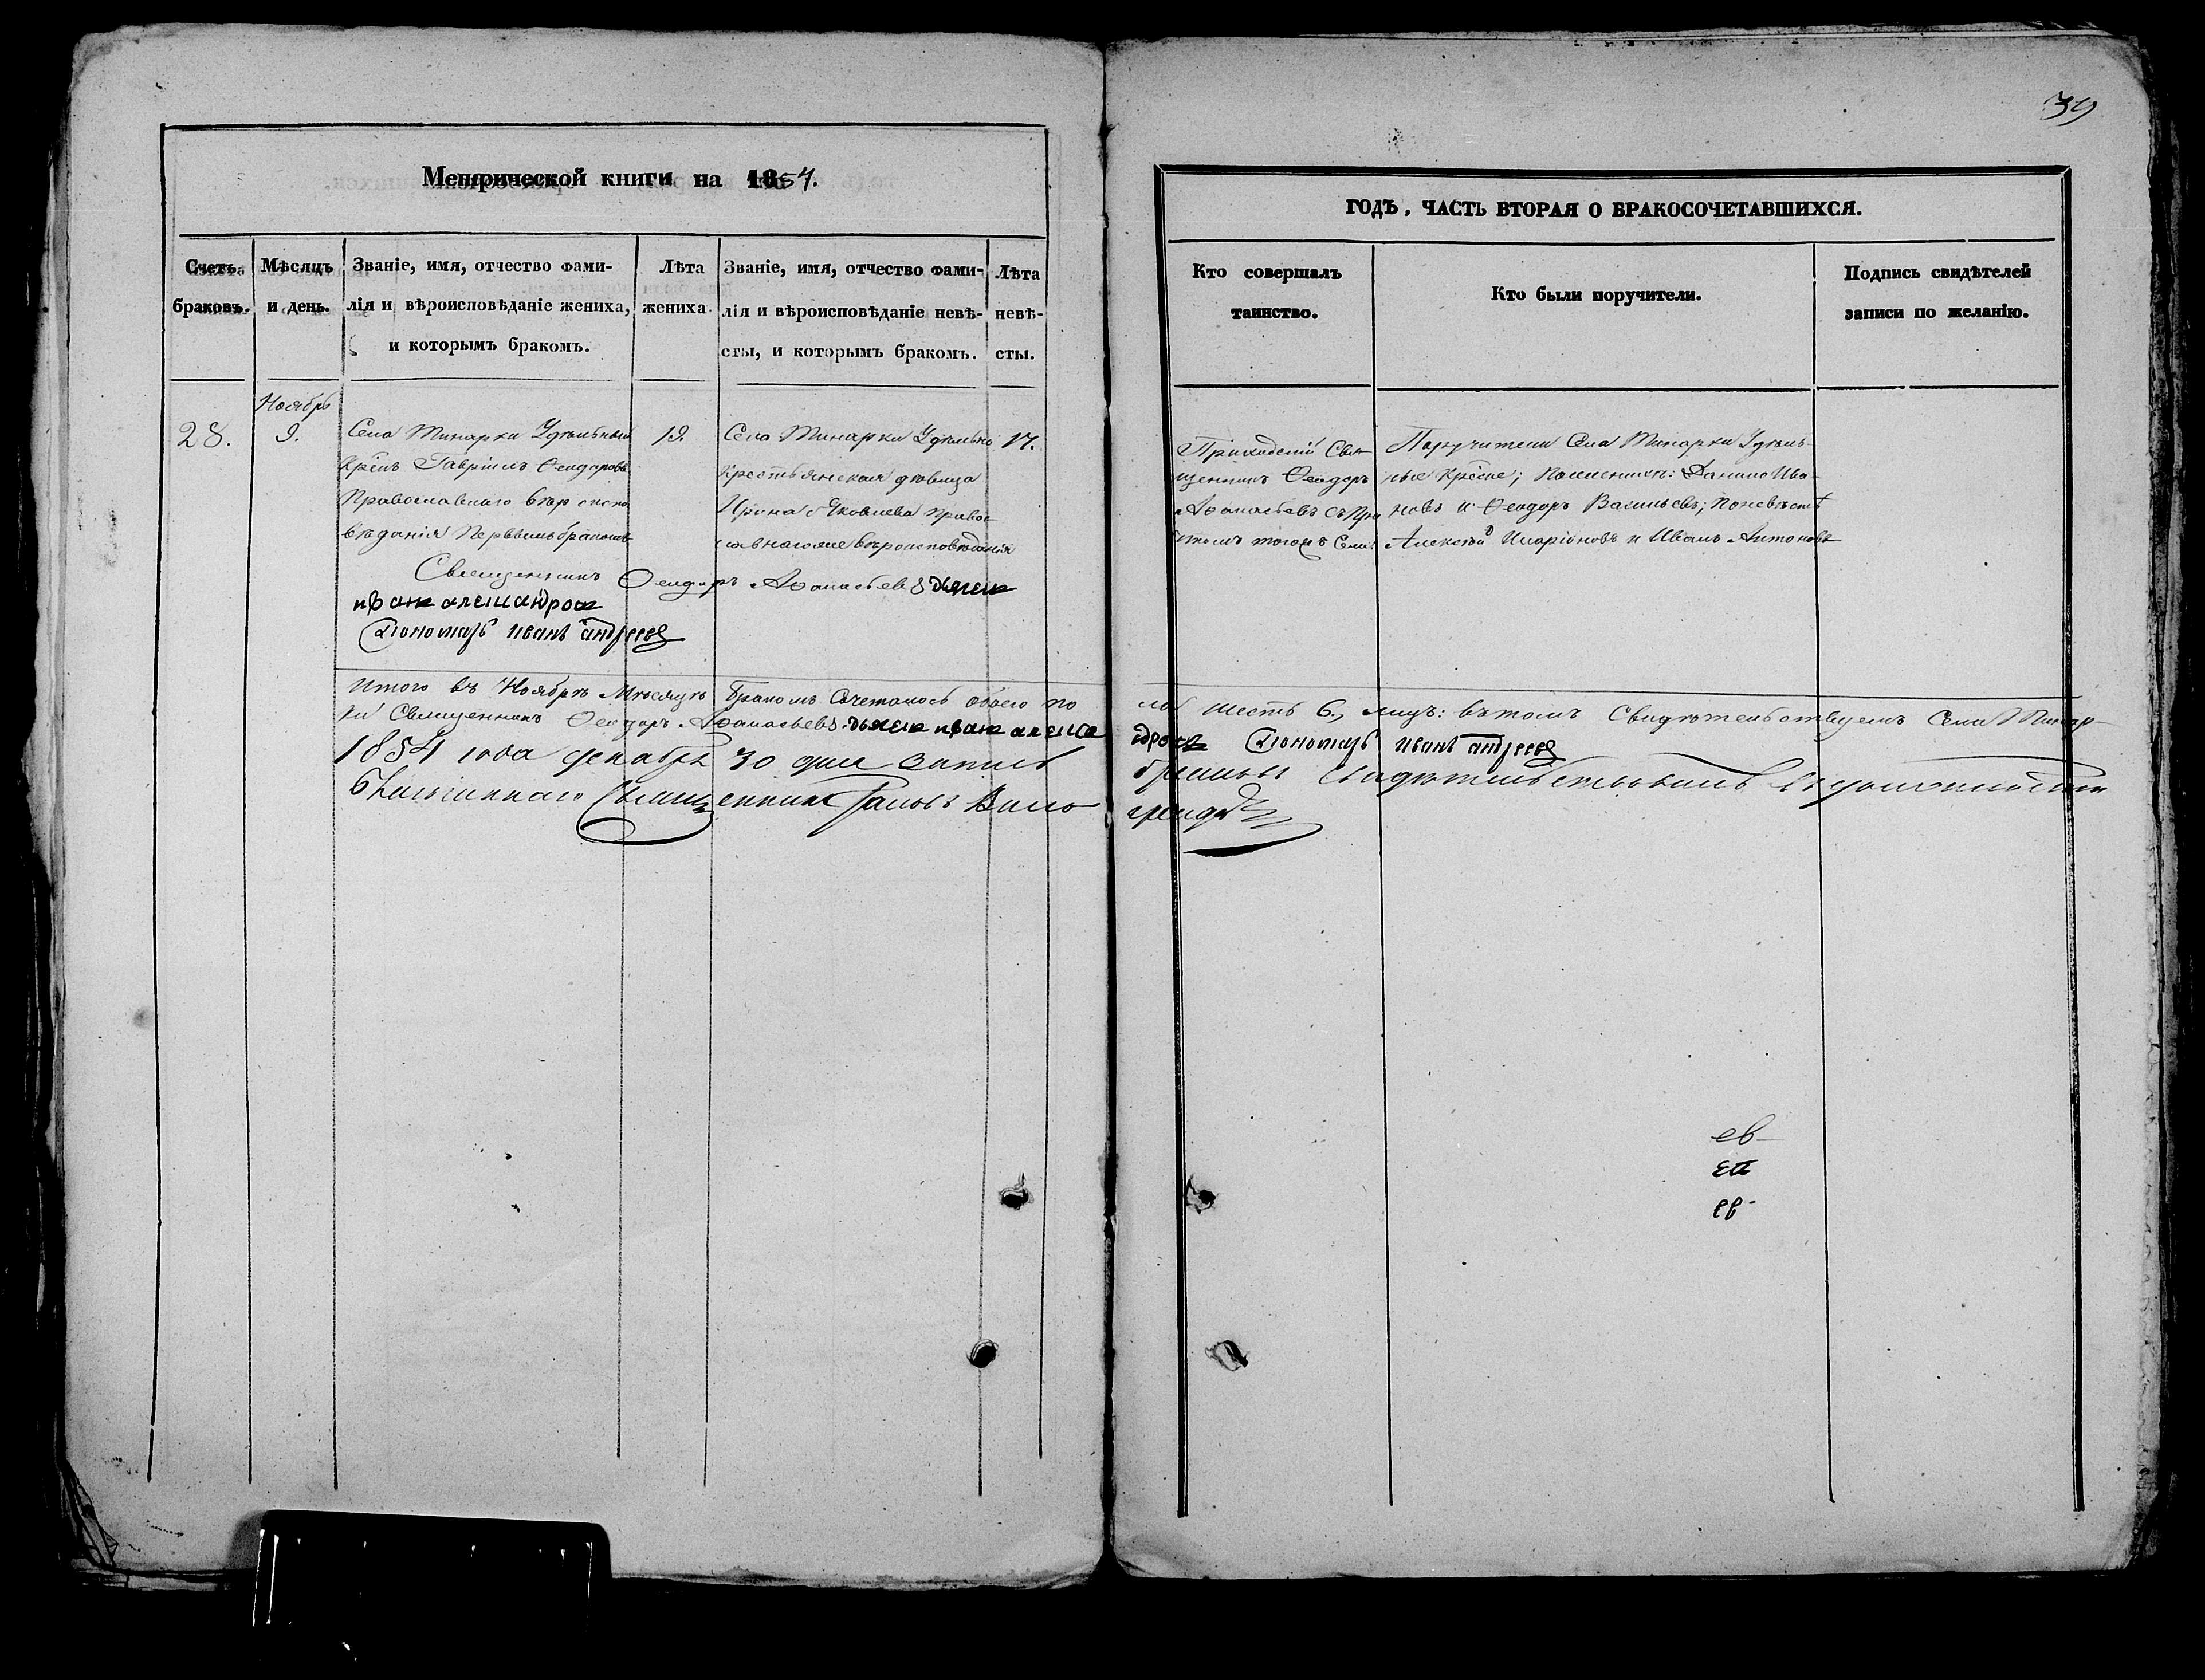 39
Метрической книги на 1854.
ГОДЪ, ЧАСТЬ ВТОРАЯ О БРАКОСОЧЕТАВШИХСЯ.
Счетъ браковъ.
Мѣсяцъ и день.
Званіе, имя, отчество фами-
лія и вѣроисповѣданіе жениха,
и которымъ бракомъ.
Лѣта
жениха.
Званіе, имя, отчество фами-
лія и вѣроисповѣданіе невѣ-
сты, и которымъ бракомъ.
Лѣта
невѣ-
сты.
Кто совершалъ
таинство.
Кто были поручители.
Подпись свидѣтелей
записи по желанію.
28.
Ноябрь
9.
Села Тинарки Удѣльный
Крѣнъ Гавріилъ Ѳеодоровъ
Православнаго вѣроиспо
вѣданія Первымъ бракомъ
19.
Села Тинарки Удѣльно
крестьянская дѣвица
Ирина Яковлева право
славнагоже вѣроисповѣданія
17.
Приходскій Свя-
щенникъ Ѳеодоръ
Аѳанасьевъ съ при
чтомъ тогожъ Села
Поручители Села Тинарки Удѣль-
ные Крѣсне; по женихѣ: Данило Ива-
новъ и Ѳеодоръ Васильевъ; по невѣстѣ
Алексѣй Иларіоновъ и Иванъ Антоновъ
Священникъ Ѳеодоръ Аѳанасьевъ дьячекъ
иванъ александровъ
Пономарь иванъ андреевъ
Итого въ Ноябрѣ Мѣсяцѣ Бракомъ Сочеталось обоего по
ла шесть 6., лицъ: въ томъ Свидѣтельствуемъ Села Тинар-
ки Священникъ Ѳеодоръ Аѳанасьевъ. дьячекъ иванъ алекса
ндровъ Пономарь иванъ андреевъ
1854 года декабря 30 дня запись
свидѣтельствовалъ
Священникъ
ев
еп
ев